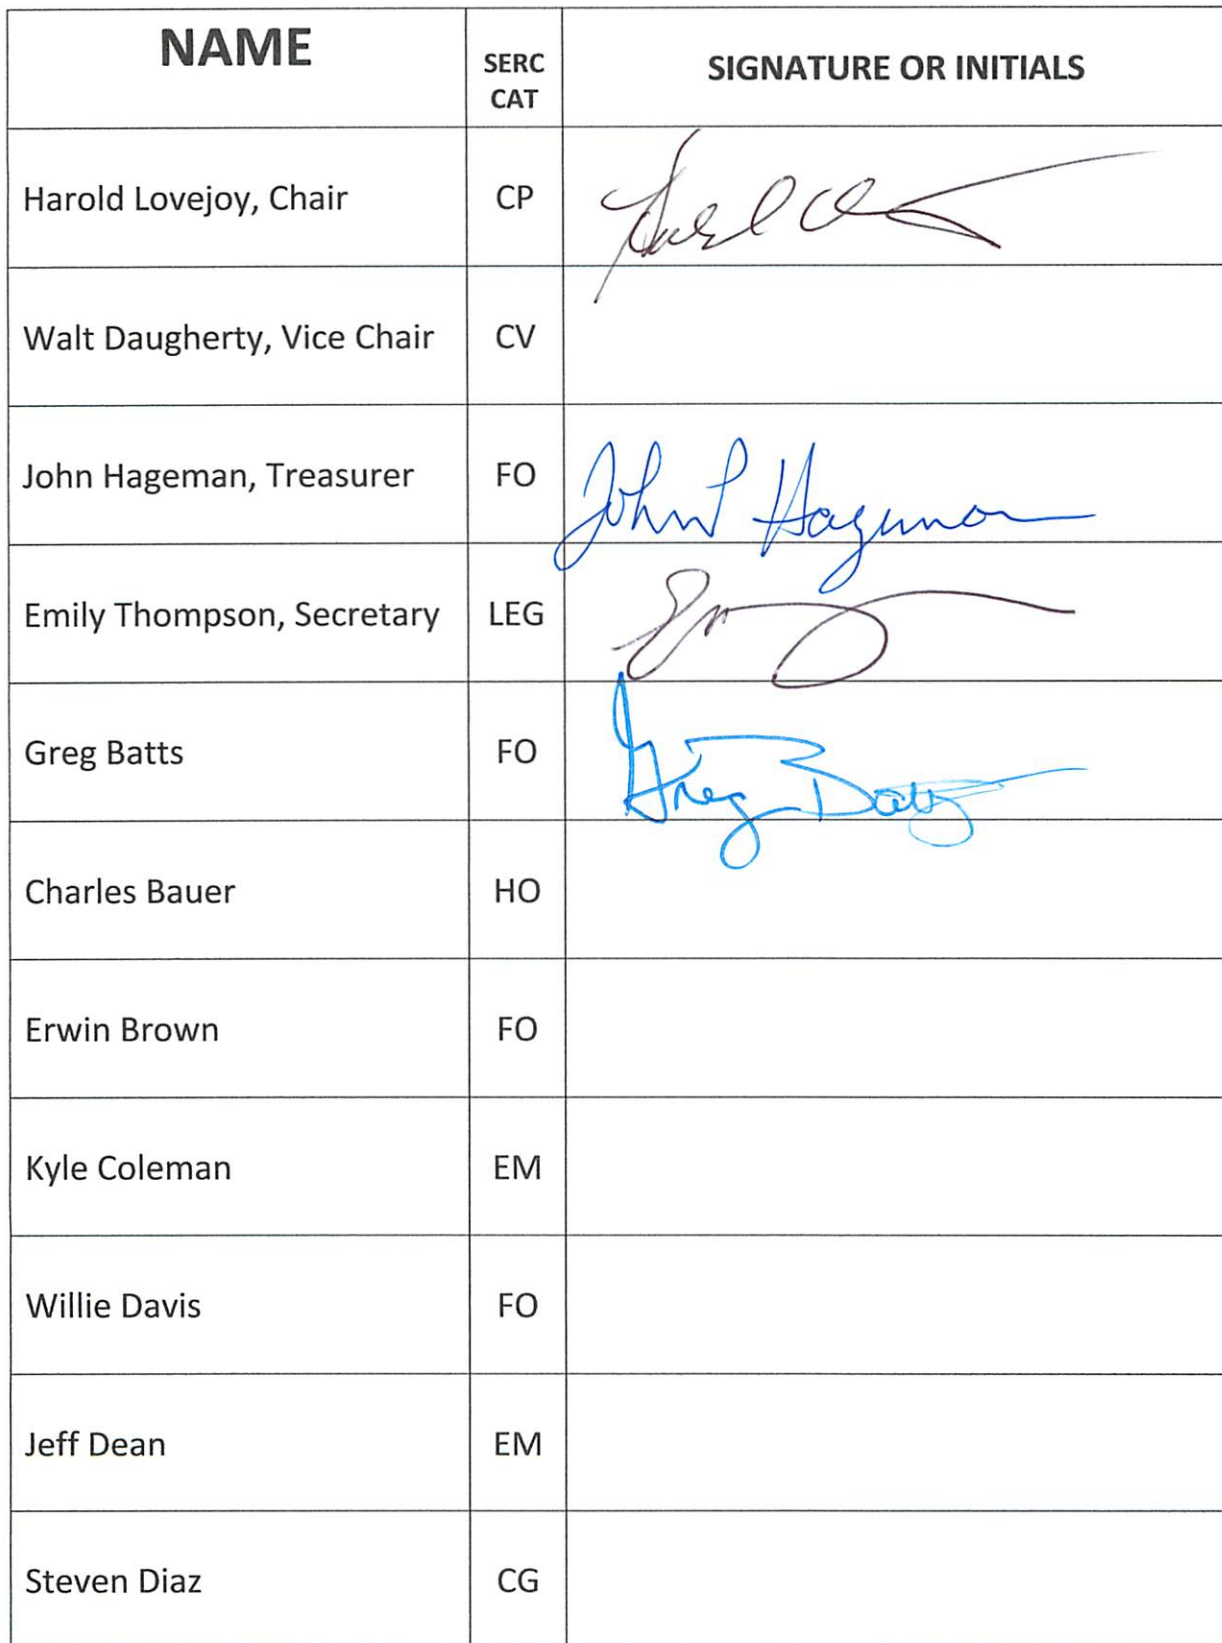 NAME SERC CAT SIGNATURE OR INITIALS
Harold Lovejoy, Chair CP
Walt Daugherty, Vice Chair CV
John Hageman, Treasurer FO John P Hageman
Emily Thompson, Secretary LEG
Greg Batts FO Greg Batts
Charles Bauer HO
Erwin Brown FO
Kyle Coleman EM
Willie Davis FO
Jeff Dean EM
Steven Diaz CG